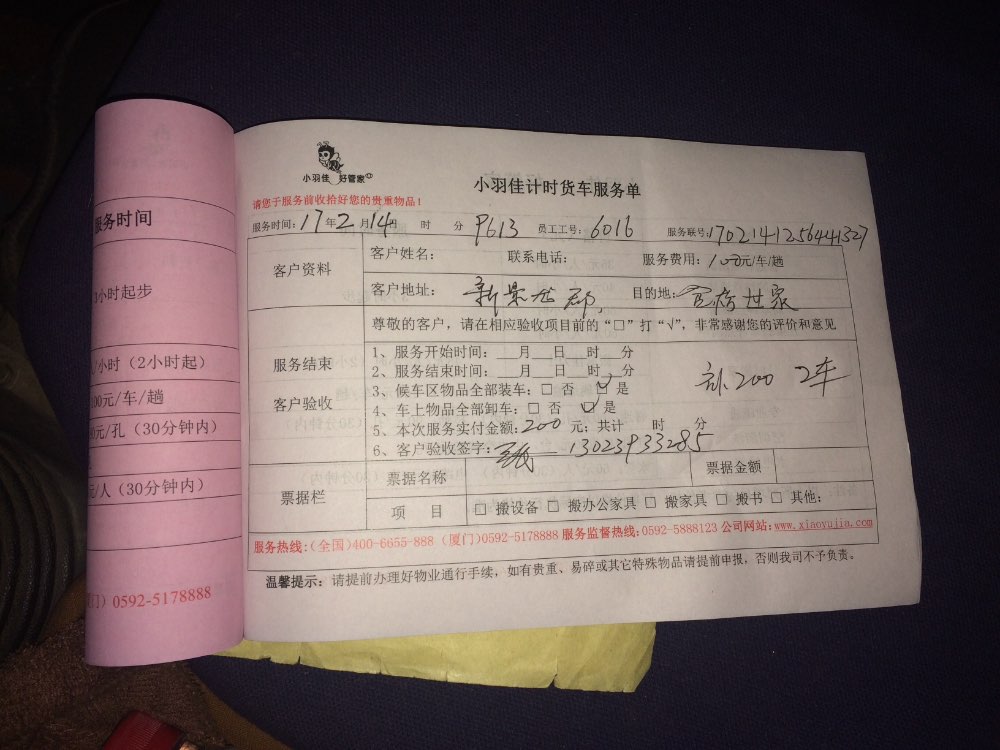 小羽佳 好管家
小羽佳计时货车服务单
请您于服务前收拾好您的贵重物品！
服务时间：17年2月14日 时 分 P613 员工工号：6016 服务联号：1702141256441327
客户资料
客户姓名： 联系电话： 服务费用：100元/车/趟
客户地址： 新景 郡 目的地： 世家
尊敬的客户，请在相应验收项目前的“□”打“√”，非常感谢您的评价和意见
服务结束
客户验收
1、服务开始时间：__月__日__时__分
2、服务结束时间：__月__日__时__分
3、候车区物品全部装车：□ 否 ☑ 是
4、车上物品全部卸车：□ 否 ☑ 是
5、本次服务实付金额：200 元；共计 时 分
6、客户验收签字： 13023933285
200 2车
票据栏
票据名称 票据金额
项 目 □ 搬设备 □ 搬办公家具 □ 搬家具 □ 搬书 □ 其他：
服务热线：（全国）400-6655-888（厦门）0592-5178888 服务监督热线：0592-5888123 公司网站：www.xiaoyujia.com
温馨提示：请提前办理好物业通行手续，如有贵重、易碎或其它特殊物品请提前申报，否则我司不予负责。
服务时间
小时起步
/小时（2小时起）
00元/车/趟
元/孔（30分钟内）
元/人（30分钟内）
门）0592-5178888